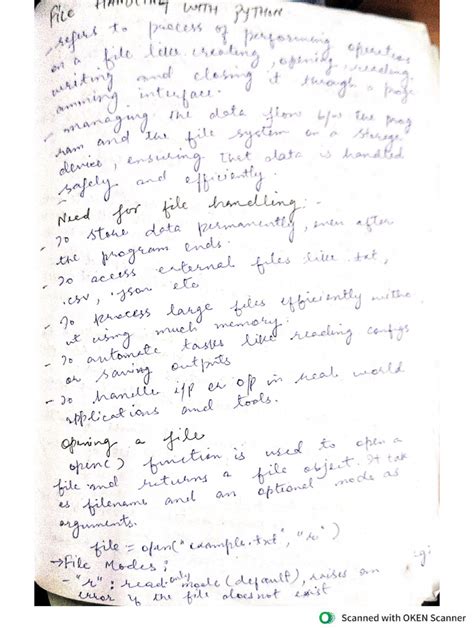 File HANDLING WITH PYTHON
- refers to process of performing operations
on a file like creating, opening, reading,
writing and closing it through a progr
amming interface.
- managing the data flow b/w the prog
ram and the file system on a storage
device, ensuring that data is handled
safely and efficiently.
Need for file handling
- To store data permanently, even after
the program ends.
- To access external files like .txt,
.csv, .json etc
- To process large files efficiently witho
ut using much memory.
- To automate tasks like reading configs
or saving outputs
- To handle i/p or o/p in real world
applications and tools.
opening a file
open() function is used to open a
file and returns a file object. It tak
es filename and an optional mode as
arguments.
file = open("example.txt", "r")
→File Modes:
- "r": read only mode (default), raises an
error if the file does not exist
Scanned with OKEN Scanner